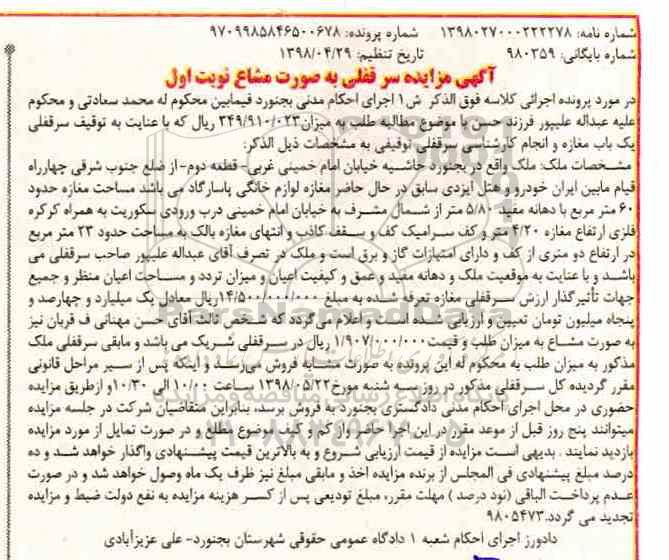 شماره نامه: ۱۳۹۸۰۲۷۰۰۰۲۲۲۲۷۸ شماره پرونده: ۹۷۰۹۹۸۵۸۴۶۵۰۰۶۷۸
شماره بایگانی: ۹۸۰۳۵۹ تاریخ تنظیم: ۱۳۹۸/۰۴/۲۹
آگهی مزایده سر قفلی به صورت مشاع نوبت اول
در مورد پرونده اجرائی کلاسه فوق الذکر ش۱ اجرای احکام مدنی بجنورد فیمابین محکوم له محمد سعادتی و محکوم
علیه عبداله علیپور فرزند حسن با موضوع مطالبه طلب به میزان ۳۴۹/۹۱۰/۰۲۳ ریال که با عنایت به توقیف سرقفلی
یک باب مغازه و انجام کارشناسی سرقفلی توقیفی به مشخصات ذیل الذکر:
مشخصات ملک: ملک واقع در بجنورد حاشیه خیابان امام خمینی غربی- قطعه دوم- از ضلع جنوب شرقی چهارراه
قیام مابین ایران خودرو و هتل ایزدی سابق در حال حاضر مغازه لوازم خانگی پاسارگاد می باشد مساحت مغازه حدود
۶۰ متر مربع با دهانه مفید ۵/۸۰ متر از شمال مشرف به خیابان امام خمینی درب ورودی سکوریت به همراه کرکره
فلزی ارتفاع مغازه ۴/۲۰ متر و کف سرامیک کف و سقف کاذب و انتهای مغازه بالک به مساحت حدود ۲۳ متر مربع
در ارتفاع دو متری از کف و دارای امتیازات گاز و برق است و ملک در تصرف آقای عبداله علیپور صاحب سرقفلی می
باشد و با عنایت به موقعیت ملک و دهانه مفید و عمق و کیفیت اعیان و میزان تردد و مساحت اعیان منظر و جمیع
جهات تأثیرگذار ارزش سرقفلی مغازه تعرفه شده به مبلغ ۱۴/۵۰۰/۰۰۰/۰۰۰ ریال معادل یک میلیارد و چهارصد و
پنجاه میلیون تومان تعیین و ارزیابی شده است و اعلام می‌گردد که شخص ثالث آقای حسن مهنانی ف قربان نیز
به صورت مشاع به میزان طلب و قیمت ۱/۹۰۷/۰۰۰/۰۰۰ ریال در سرقفلی شریک می باشد و مابقی سرقفلی ملک
مذکور به میزان طلب به محکوم له این پرونده به صورت مشابه فروش می‌رسد و اینکه پس از سیر مراحل قانونی
مقرر گردیده کل سرقفلی مذکور در روز سه شنبه مورخ ۱۳۹۸/۰۵/۲۲ ساعت ۱۰/۰۰ الی ۱۰/۳۰ و ازطریق مزایده
حضوری در محل اجرای احکام مدنی دادگستری بجنورد به فروش برسد، بنابراین متقاضیان شرکت در جلسه مزایده
میتوانند پنج روز قبل از موعد مقرر در این اجرا حاضر و از کم و کیف موضوع مطلع و در صورت تمایل از مورد مزایده
بازدید نمایند . بدیهی است مزایده از قیمت ارزیابی شروع و به بالاترین قیمت پیشنهادی واگذار خواهد شد و ده
درصد مبلغ پیشنهادی فی المجلس از برنده مزایده اخذ و مابقی مبلغ نیز ظرف یک ماه وصول خواهد شد و در صورت
عدم پرداخت الباقی (نود درصد ) مهلت مقرر، مبلغ تودیعی پس از کسر هزینه مزایده به نفع دولت ضبط و مزایده
تجدید می گردد.۹۸۰۵۴۷۳
دادورز اجرای احکام شعبه ۱ دادگاه عمومی حقوقی شهرستان بجنورد- علی عزیزآبادی
ParsNamadData
پایگاه اطلاع رسانی مناقصه و مزایده